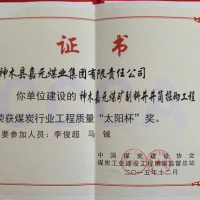 证书
神木县嘉元煤业集团有限责任公司
你单位建设的神木嘉元煤矿副斜井井筒掘砌工程
荣获煤炭行业工程质量“太阳杯”奖。
主要参加人员：李俊超 马铖
中国煤炭建设协会
煤炭工业建设工程质量监督总站
二〇一五年十二月